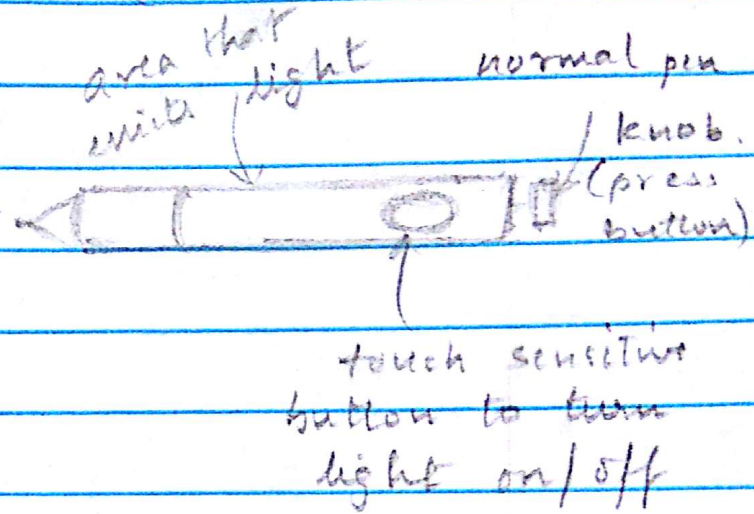 area that
emits light
normal pen
knob.
(press
button)
touch sensitive
button to turn
light on/off